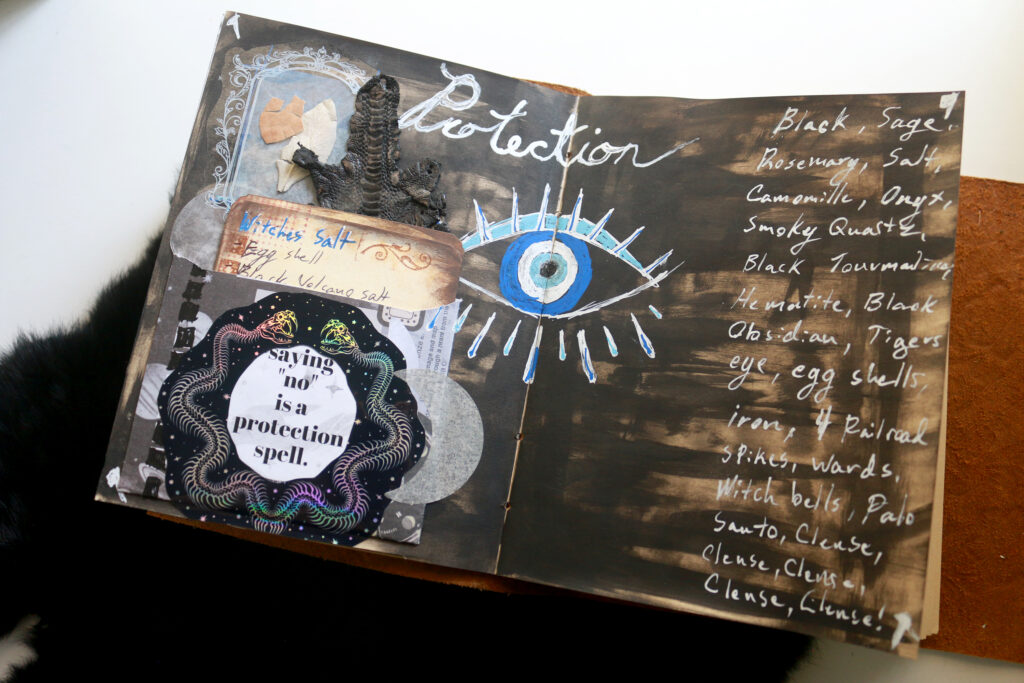 Protection
Witches Salt
Egg shell
Black Volcano salt
saying
"no"
is a
protection
spell.
Black, Sage,
Rosemary, Salt,
Camomille, Onyx,
Smoky Quartz,
Black Tourmaline,
Hematite, Black
Obsidian, Tigers
eye, egg shells,
iron, 4 Railroad
Spikes, Wards,
Witch bells, Palo
Santo, Clense,
Clense, Clense,
Clense, Clense!